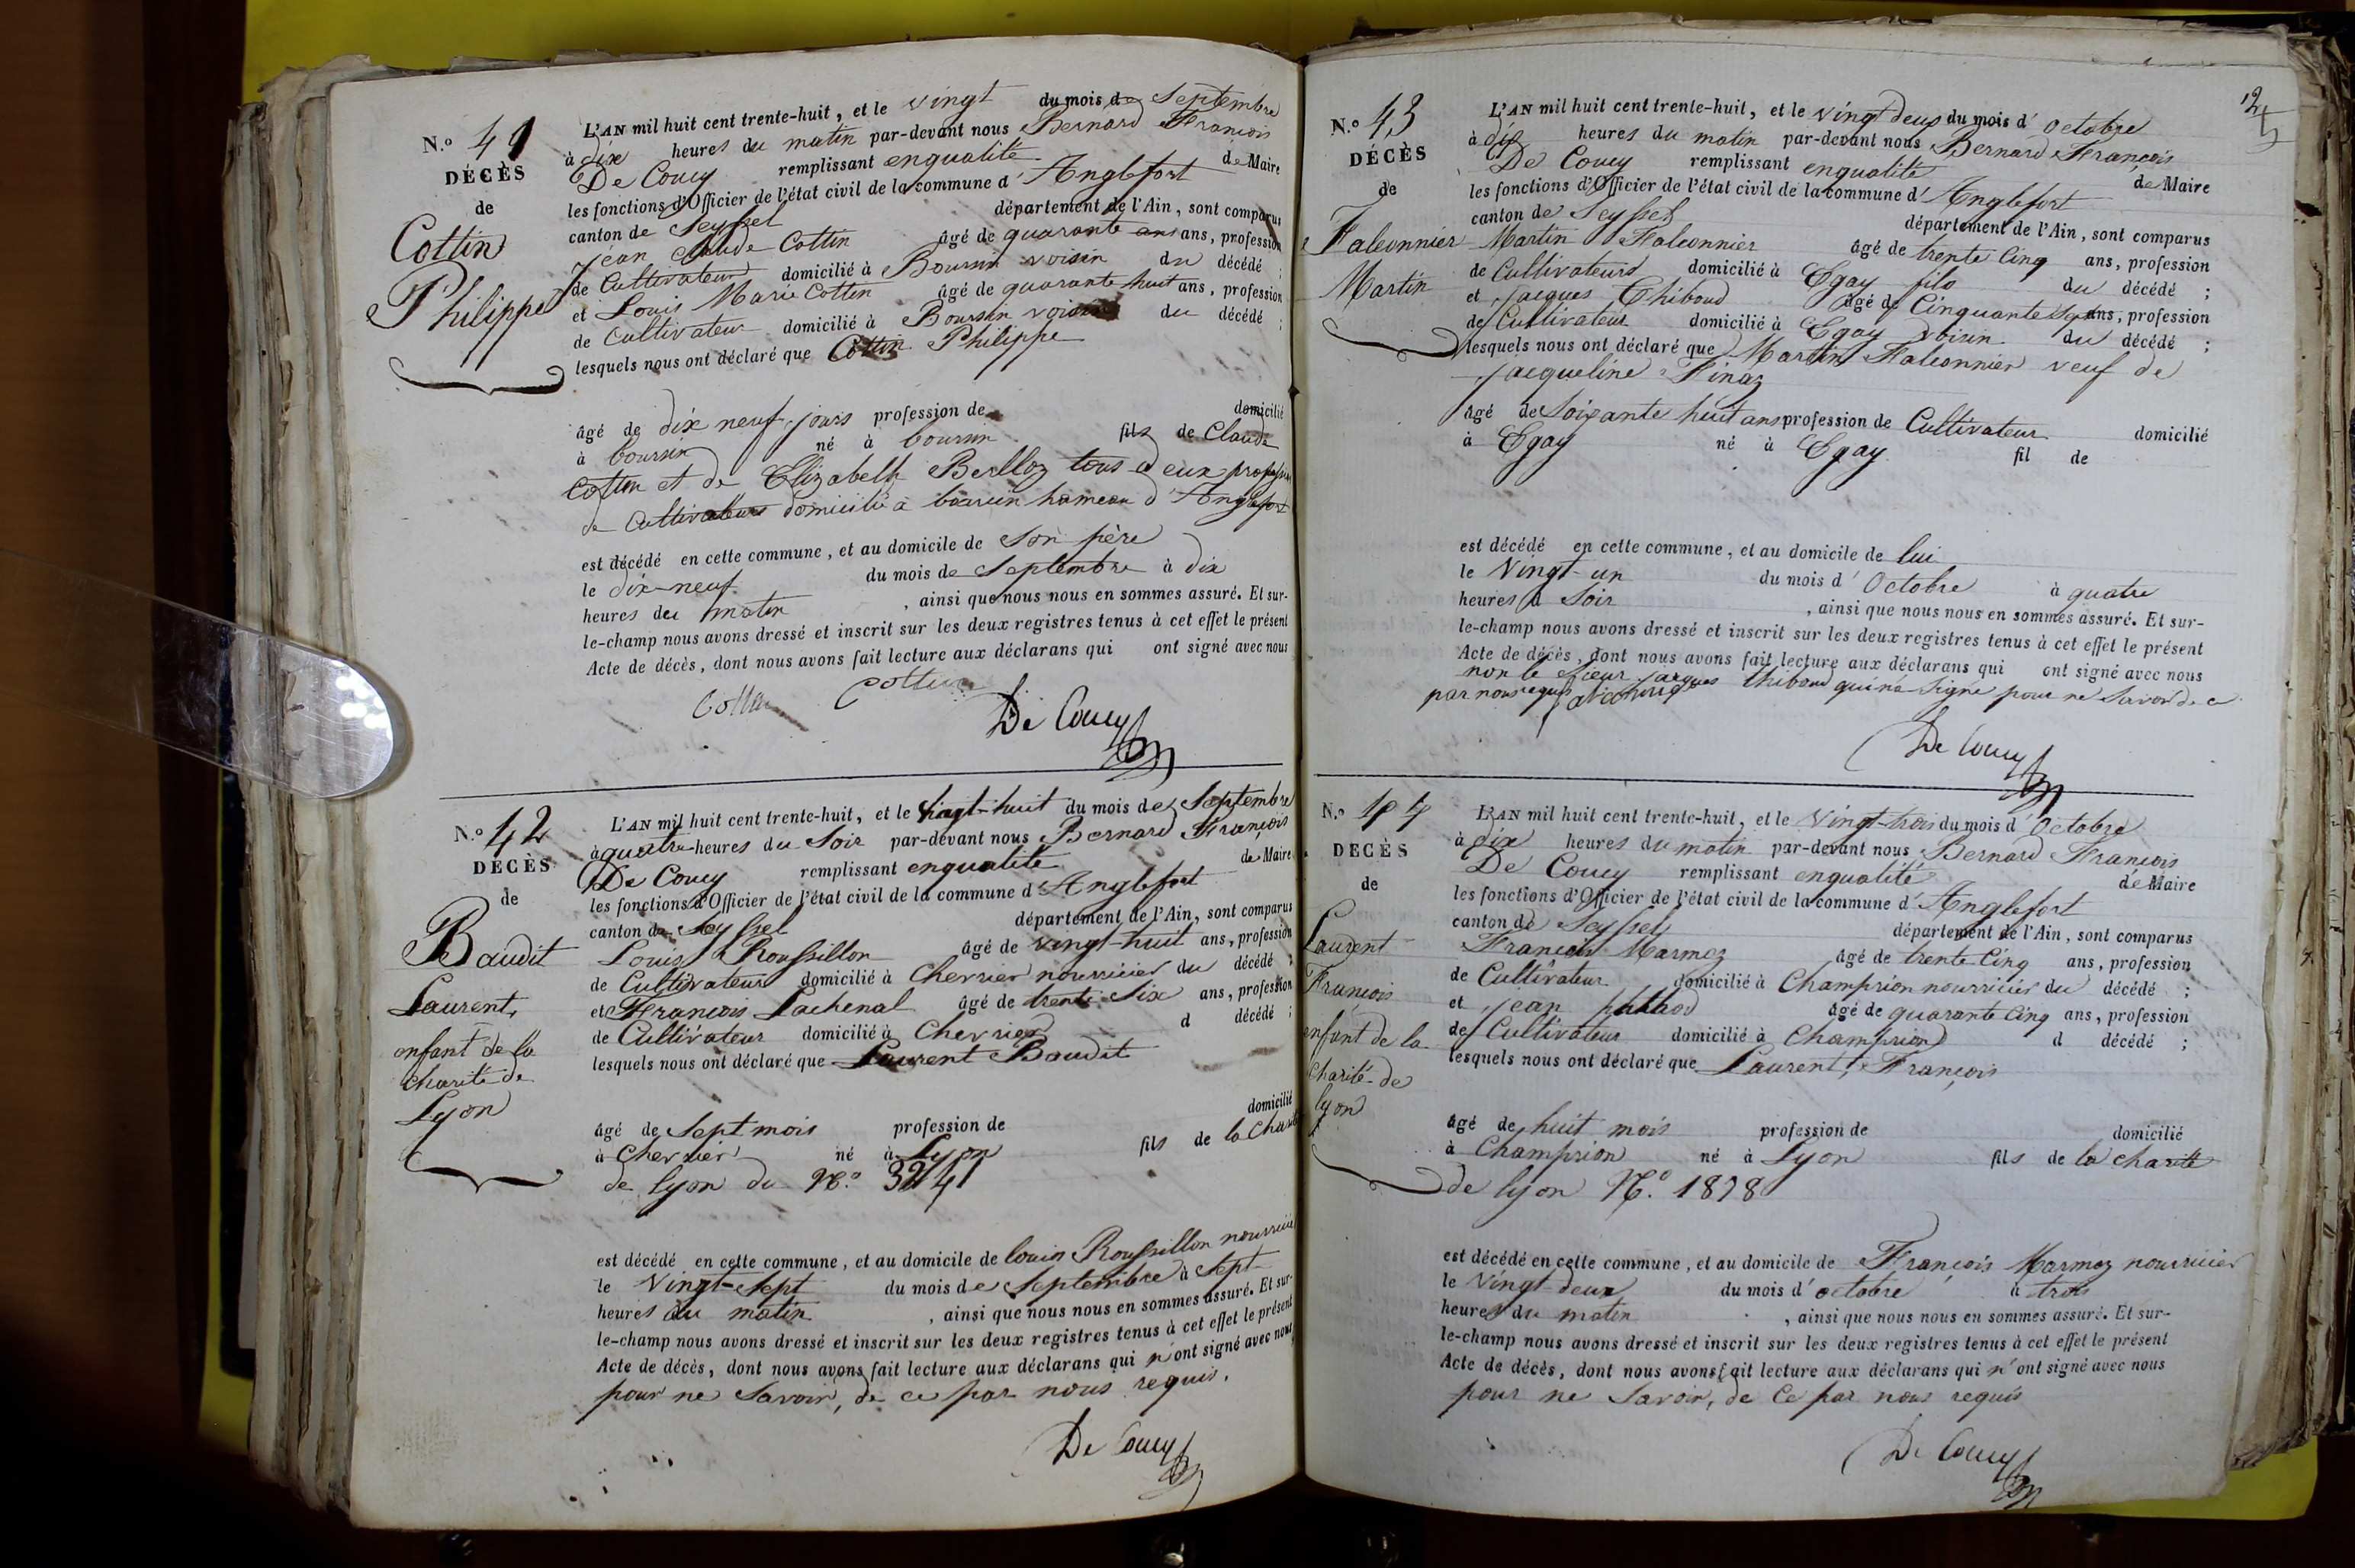 N.º 41
DÉCÈS
de
Cottin
Philippe
L'AN mil huit cent trente-huit, et le vingt du mois de Septembre
à dix heures du matin par-devant nous Bernard François
De Coucy remplissant enqualité de Maire
les fonctions d'Officier de l'état civil de la commune d'Anglefort
canton de Seyssel département de l'Ain, sont comparus
Jean Claude Cottin âgé de quarante ans ans, profession
de Cultivateur domicilié à Boursin voisin du décédé ;
et Louis Marie Cottin âgé de quarante huit ans, profession
de Cultivateur domicilié à Boursin voisin du décédé ;
lesquels nous ont déclaré que Cottin Philippe
âgé de dix neuf jours profession de domicilié
à boursin né à boursin fils de Claude
Cottin et de Elizabeth Berlloz tous deux profession
de Cultivateurs domicilié à boursin hameau d'Anglefort
est décédé en cette commune, et au domicile de Son père
le dix-neuf du mois de Septembre à dix
heures du matin, ainsi que nous nous en sommes assuré. Et sur-
le-champ nous avons dressé et inscrit sur les deux registres tenus à cet effet le présent
Acte de décès, dont nous avons fait lecture aux déclarans qui ont signé avec nous
Cottin Cottin
De Coucy
N.º 42
DÉCÈS
de
Baudit
Laurent,
enfant de la
charité de
Lyon
L'AN mil huit cent trente-huit, et le Vingt-huit du mois de Septembre
à quatre heures du Soir par-devant nous Bernard François
De Coucy remplissant enqualité de Maire
les fonctions d'Officier de l'état civil de la commune d'Anglefort
canton de Seyssel département de l'Ain, sont comparus
Louis Roussillon âgé de vingt-huit ans, profession
de Cultivateur domicilié à Chevrier nourricier du décédé ;
et François Lachenal âgé de trente Six ans, profession
de Cultivateur domicilié à Chevrier d décédé ;
lesquels nous ont déclaré que Laurent Baudit
âgé de Sept mois profession de domicilié
à Chevrier né à Lyon fils de la Charité
de lyon du N.º 3241
est décédé en cette commune, et au domicile de louis Roussillon nourricier
le Vingt-Sept du mois de Septembre à Sept
heures du matin, ainsi que nous nous en sommes assuré. Et sur-
le-champ nous avons dressé et inscrit sur les deux registres tenus à cet effet le présent
Acte de décès, dont nous avons fait lecture aux déclarans qui n'ont signé avec nous
pour ne Savoir, de ce par nous requis.
De Coucy
N.º 43
DÉCÈS
de
Falconnier
Martin
L'AN mil huit cent trente-huit, et le vingt deux du mois d'Octobre
à dix heures du matin par-devant nous Bernard François
De Coucy remplissant enqualité de Maire
les fonctions d'Officier de l'état civil de la commune d'Anglefort
canton de Seyssel département de l'Ain, sont comparus
Martin Falconnier âgé de trente Cinq ans, profession
de Cultivateurs domicilié à Egay fils du décédé ;
et Jacques Thiboud âgé de Cinquante Sept ans, profession
de Cultivateur domicilié à Egay voisin du décédé ;
lesquels nous ont déclaré que Martin Falconnier veuf de
Jacqueline Finaz
âgé de Soixante huit ans profession de Cultivateur domicilié
à Egay né à Egay fil de
est décédé en cette commune, et au domicile de lui
le Vingt-un du mois d'Octobre à quatre
heures d Soir, ainsi que nous nous en sommes assuré. Et sur-
le-champ nous avons dressé et inscrit sur les deux registres tenus à cet effet le présent
Acte de décès, dont nous avons fait lecture aux déclarans qui ont signé avec nous
non le Sieur Jacques thiboud qui n'a Signé pour ne Savoir de ce
par nous requis
De Coucy
N.º 44
DÉCÈS
de
Laurent
François
enfant de la
Charité de
lyon
L'AN mil huit cent trente-huit, et le Vingt-trois du mois d'Octobre
à dix heures du matin par-devant nous Bernard François
De Coucy remplissant enqualité de Maire
les fonctions d'Officier de l'état civil de la commune d'Anglefort
canton de Seyssel département de l'Ain, sont comparus
François Marmoz âgé de trente Cinq ans, profession
de Cultivateur domicilié à Champrion nourricier du décédé ;
et Jean puthod âgé de quarante Cinq ans, profession
de Cultivateur domicilié à Champriond d décédé ;
lesquels nous ont déclaré que Laurent, François
âgé de huit mois profession de domicilié
à Champrion né à Lyon fils de la charité
de lyon N.º 1878
est décédé en cette commune, et au domicile de François Marmoz nourricier
le Vingt-deux du mois d'octobre à trois
heures du matin, ainsi que nous nous en sommes assuré. Et sur-
le-champ nous avons dressé et inscrit sur les deux registres tenus à cet effet le présent
Acte de décès, dont nous avons fait lecture aux déclarans qui n'ont signé avec nous
pour ne Savoir, de Ce par nous requis
De Coucy